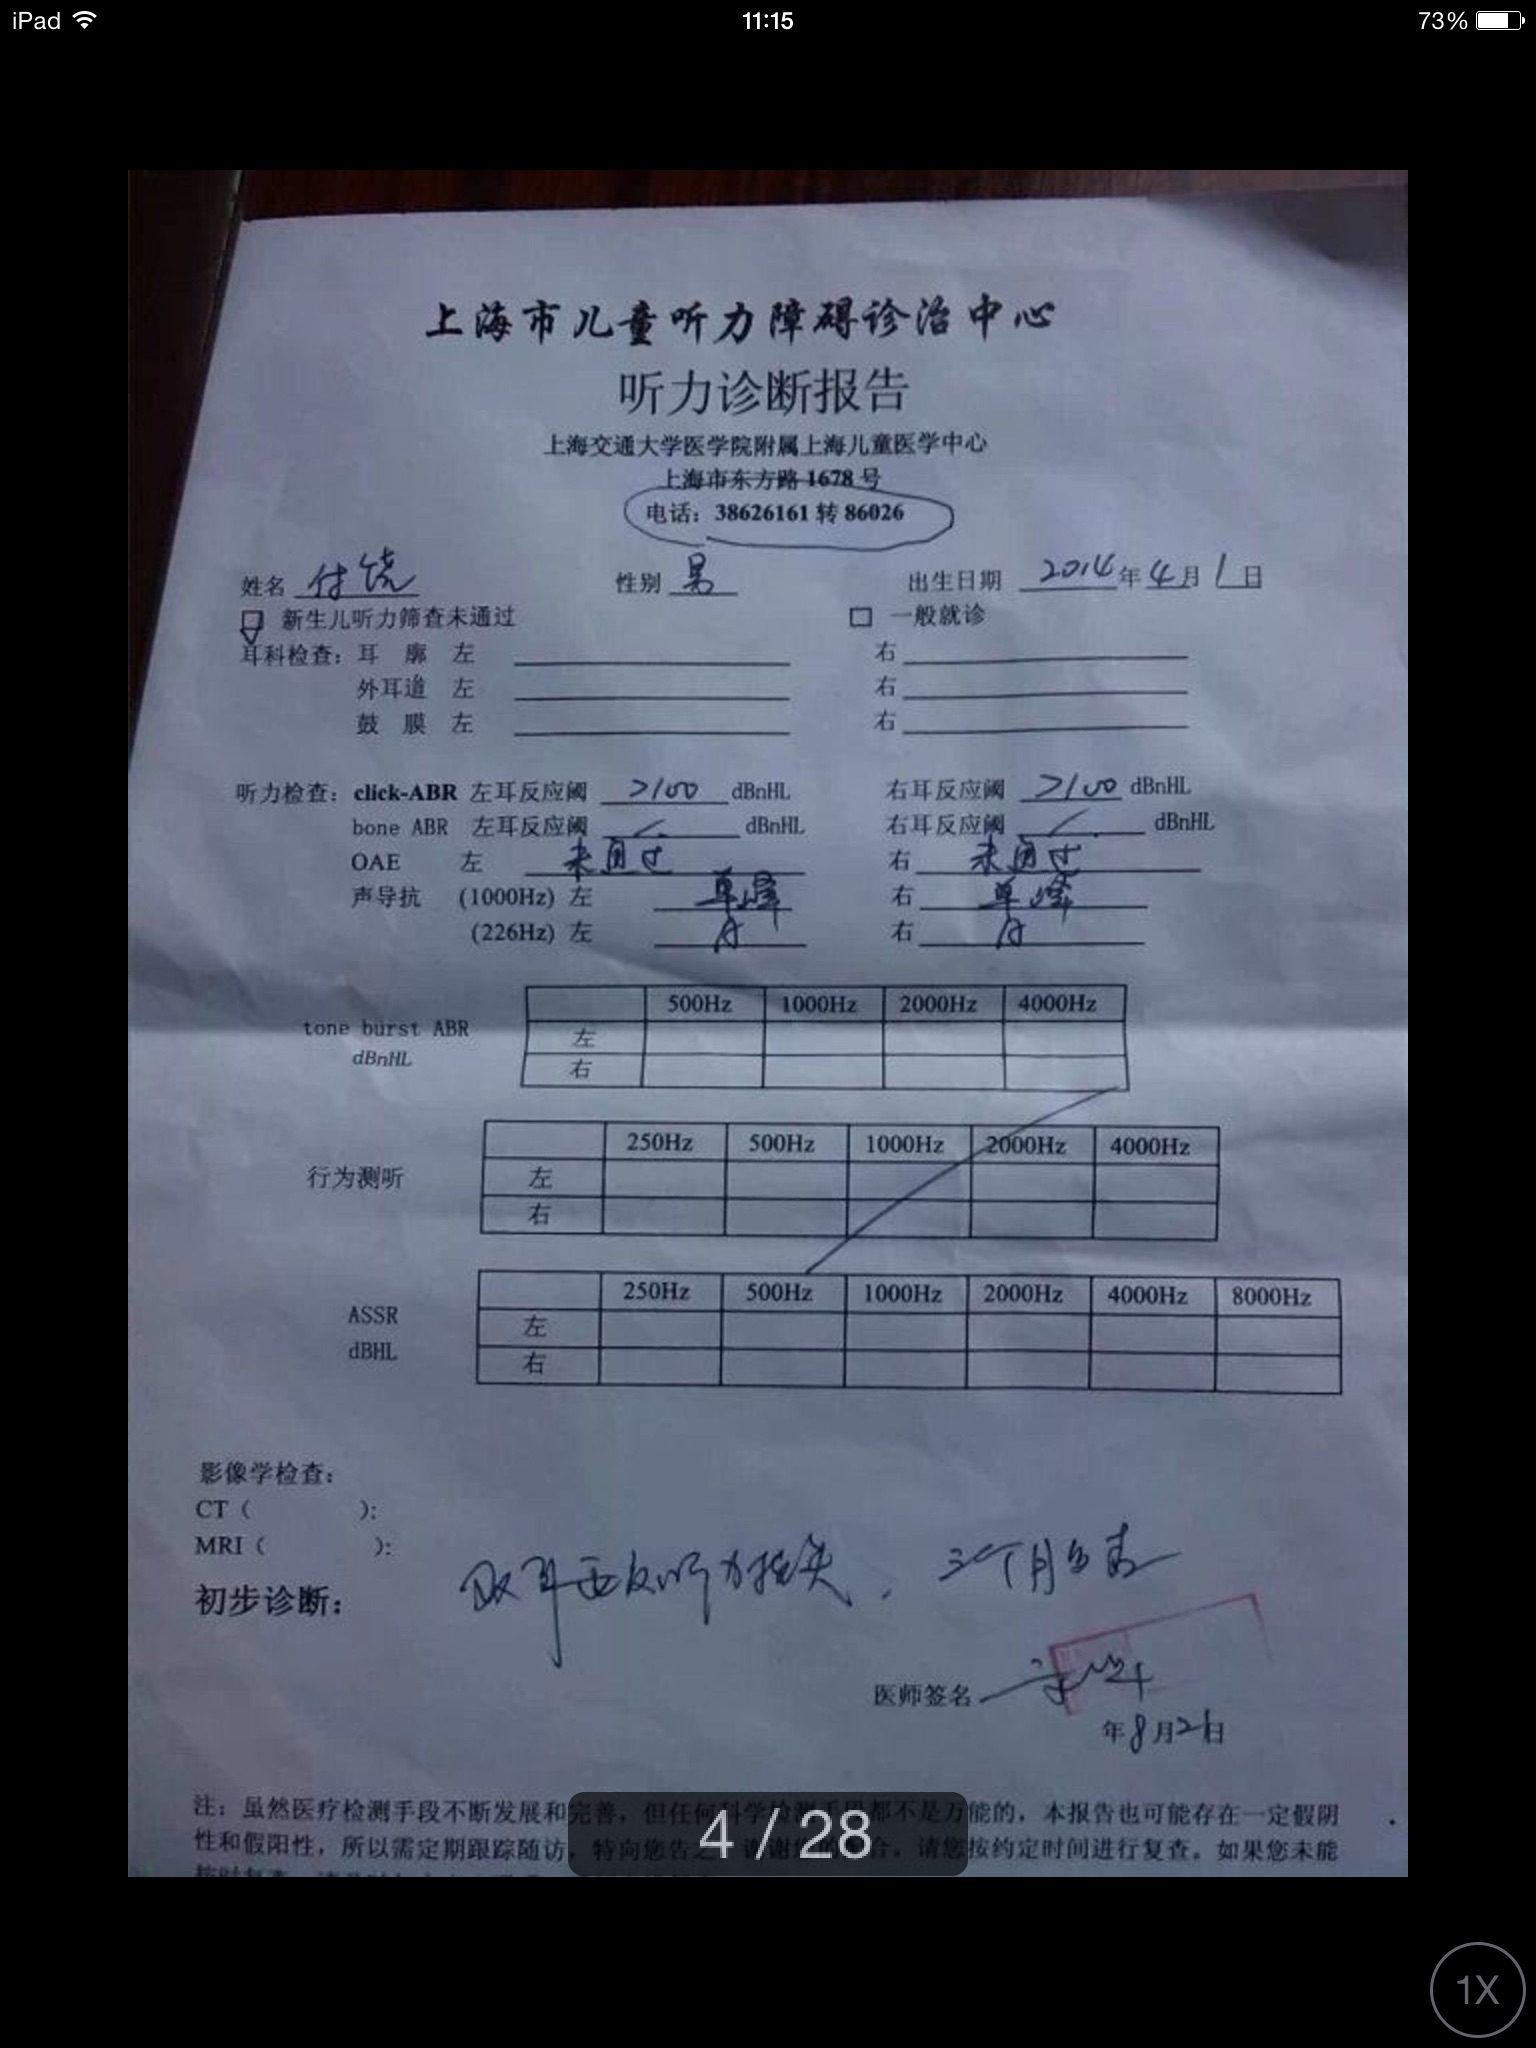 iPad 11:15 73%
上海市儿童听力障碍诊治中心
听力诊断报告
上海交通大学医学院附属上海儿童医学中心
上海市东方路 1678 号
电话：38626161 转 86026
姓名 付饶 性别 男 出生日期 2014 年 4 月 1 日
新生儿听力筛查未通过 一般就诊
耳科检查：耳 廓 左 右
外耳道 左 右
鼓 膜 左 右
听力检查：click-ABR 左耳反应阈 >100 dBnHL 右耳反应阈 >100 dBnHL
bone ABR 左耳反应阈 / dBnHL 右耳反应阈 / dBnHL
OAE 左 未通过 右 未通过
声导抗 (1000Hz) 左 单峰 右 单峰
(226Hz) 左 A 右 A
500Hz 1000Hz 2000Hz 4000Hz
tone burst ABR 左
dBnHL 右
250Hz 500Hz 1000Hz 2000Hz 4000Hz
行为测听 左
右
250Hz 500Hz 1000Hz 2000Hz 4000Hz 8000Hz
ASSR 左
dBHL 右
影像学检查：
CT（ ）：
MRI（ ）：
初步诊断： 双耳重度听力损失，三个月复查
医师签名
年 8 月 21 日
注：虽然医疗检测手段不断发展和完善，但任何科学检测手段都不是万能的，本报告也可能存在一定假阴
性和假阳性，所以需定期跟踪随访，特向您告之，谢谢您的配合。请您按约定时间进行复查。如果您未能
4 / 28
1X